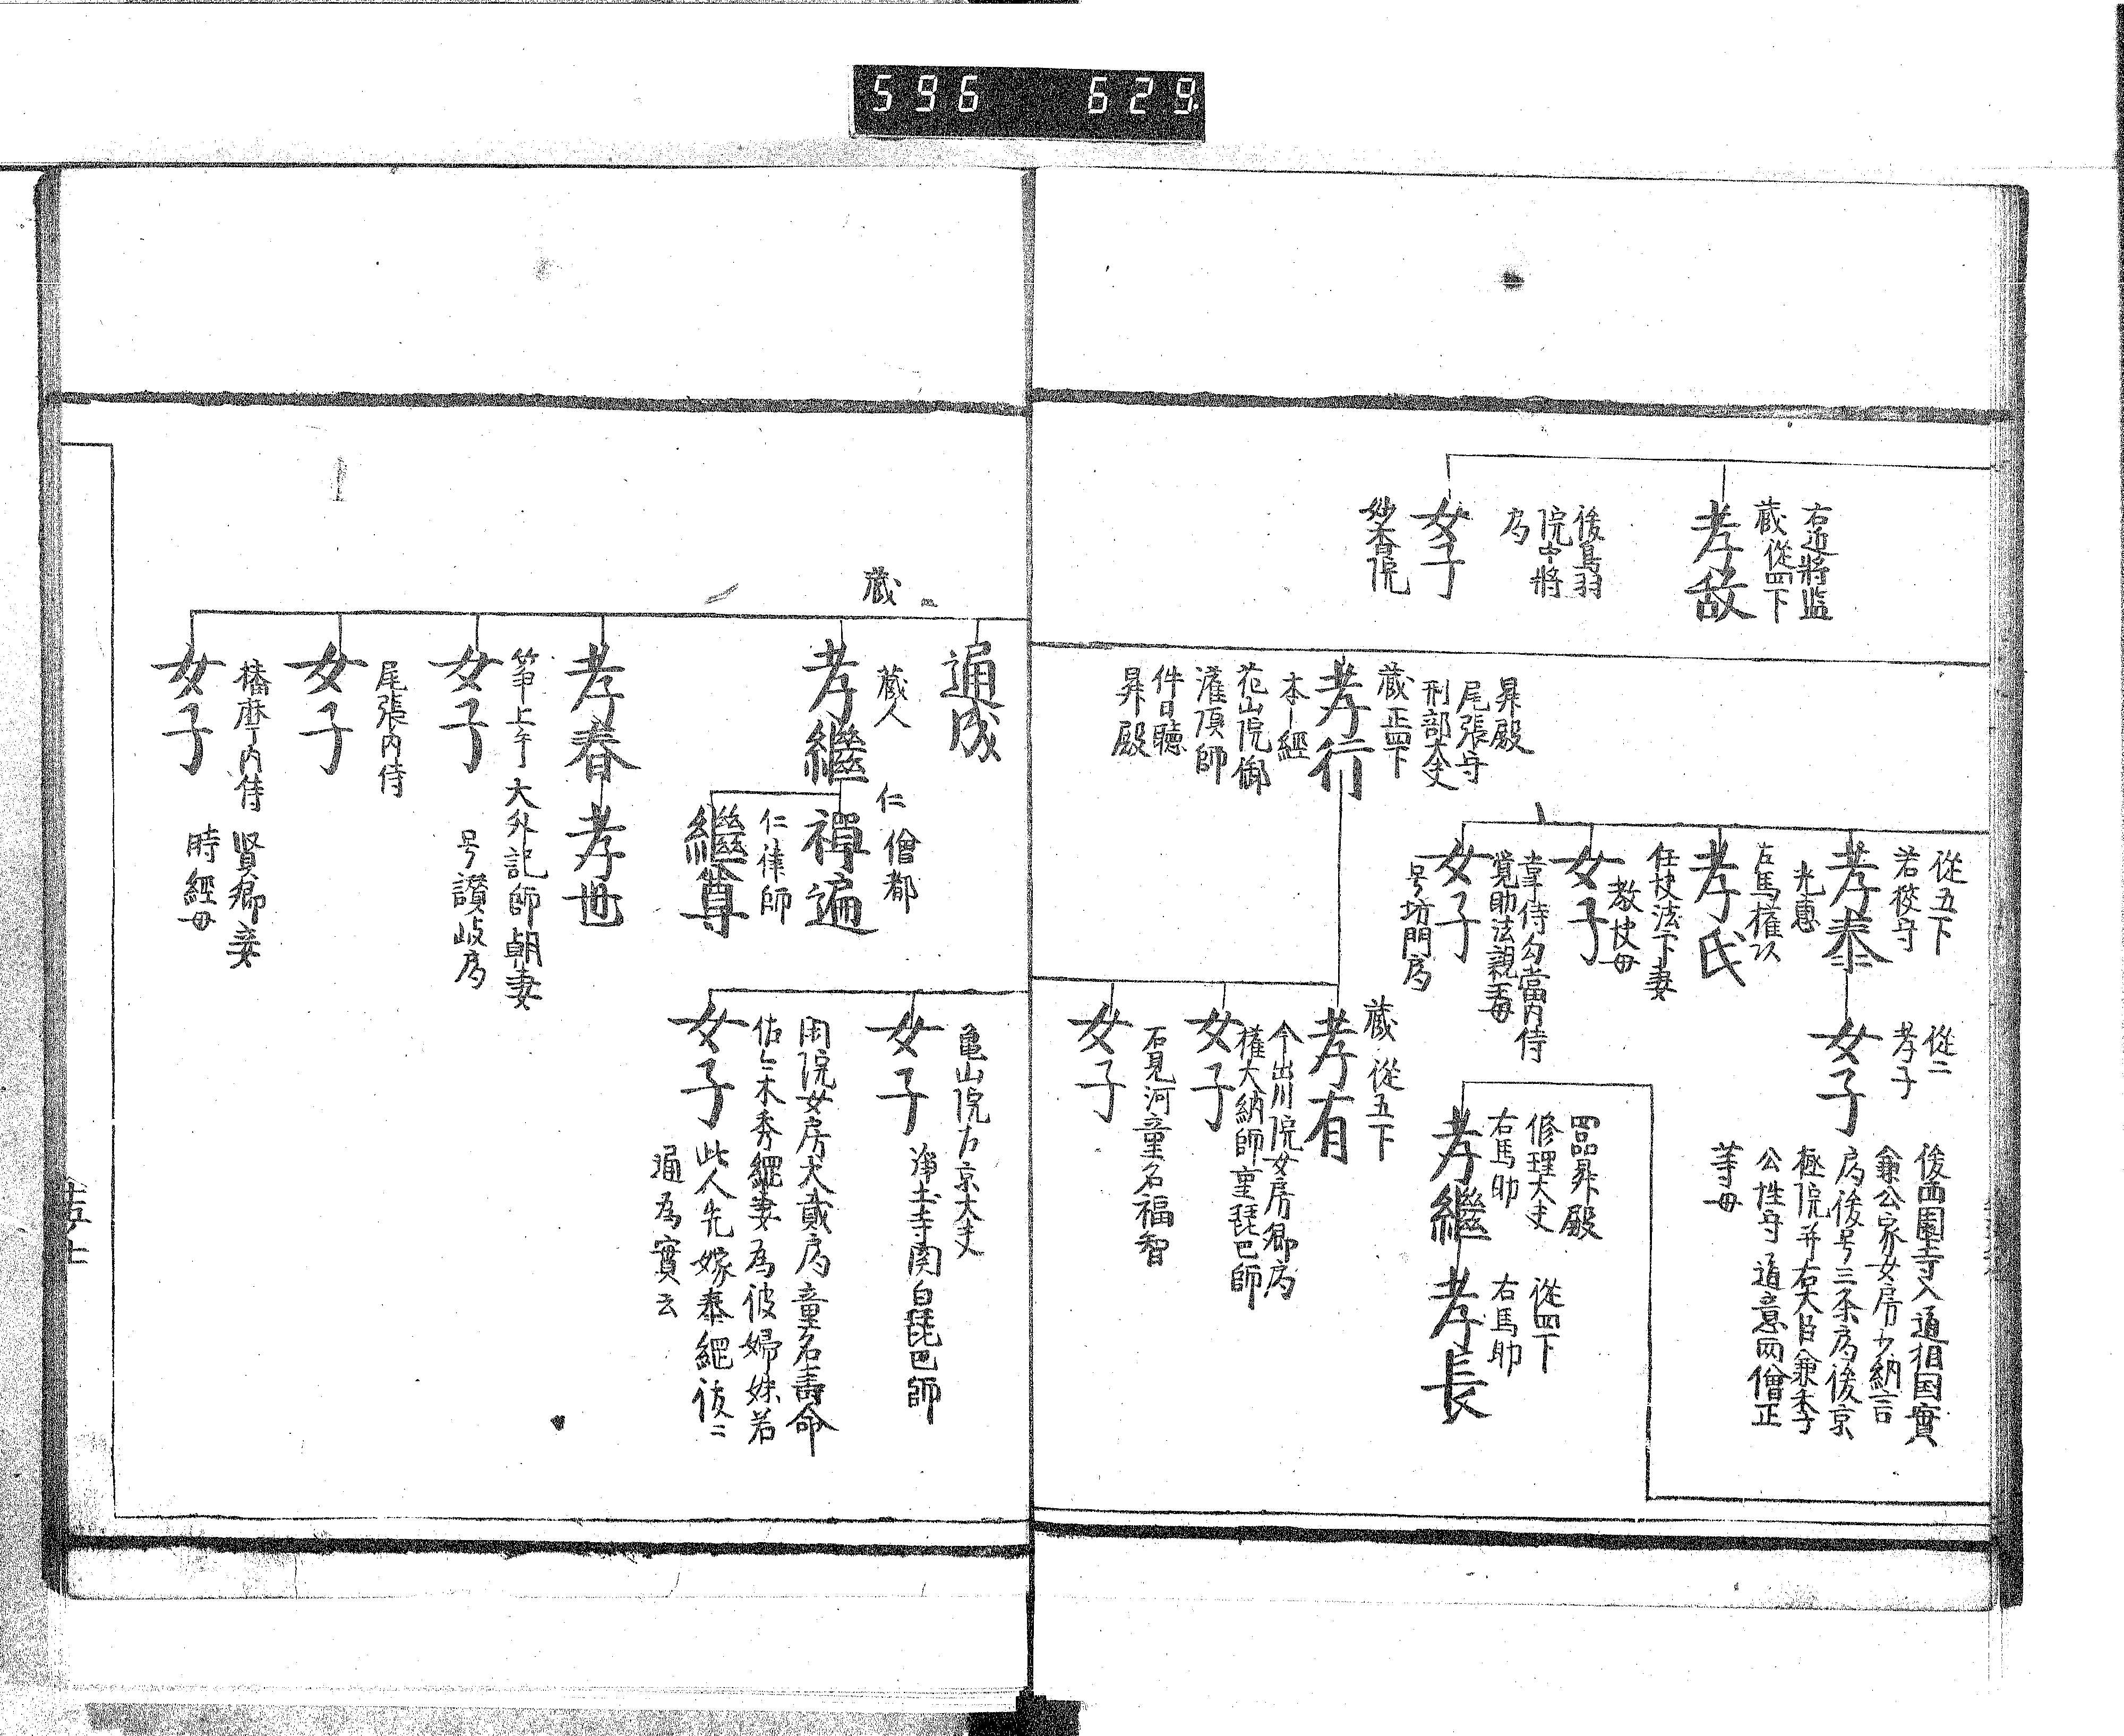 596 629
右近將監
蔵 從四下
孝敌
後鳥羽
院中將
局
女子
妙音院
昇殿
尾張守
刑部大夫
蔵 正四下
孝行
本一經
花山院御
灌頂師
件日聴
昇殿
從五下
若狹守
孝泰
光惠
左馬權以
孝氏
任快法下妻
女子
教快母
掌侍勾當内侍
覚助法親王母
女子
号坊門局
從二
孝子
女子
後西園寺入道相国實
兼公家女房少納言
局後号三条局後京
極院并右大臣兼季
公性守 道意兩僧正
等母
四品昇殿
修理大夫
右馬助
孝繼
從四下
右馬助
孝長
蔵 從五下
孝有
今出川院女房卿局
權大納師童琵巴師
女子
石見河童名福智
女子
通成
蔵
蔵人
孝繼
仁 僧都
禅遍
仁律師
繼尊
孝春
孝世
筝上手 大外記師朝妻
女子
号讃岐局
尾張内侍
女子
播磨内侍 賢卿妾
女子
時經母
亀山院右京大夫
女子
浄土寺関白琵巴師
佑々木秀繩妻為彼婦妹若
女子
此人先嫁泰繩後ニ
通為實云